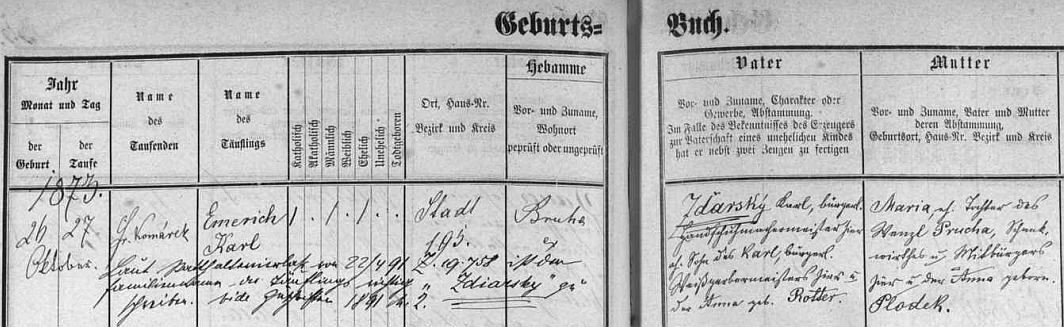 Geburts=
Buch.
Jahr
Monat und Tag
der
Geburt
der
Taufe
Name
des
Taufenden
Name
des
Täuflings
Katholisch
Akatholisch
Männlich
Weiblich
Ehelich
Unehelich
Todtgeboren
Ort, Haus-Nr.
Bezirk und Kreis
Hebamme
Vor- und Zuname,
Wohnort
geprüft oder ungeprüft
Vater
Vor- und Zuname, Charakter oder
Gewerbe, Abstammung.
Im Falle des Bekenntnisses des Erzeugers
zur Vaterschaft eines unehelichen Kindes
hat er nebst zwei Zeugen zu fertigen
Mutter
Vor- und Zuname, Vater und Mutter
deren Abstammung,
Geburtsort, Haus-Nr. Bezirk und Kreis
1873.
26 27
Oktober.
Fr. Komárek
Emerich
Karl
/ . / . / . .
Stadt
195.
Laut Statthaltereierlaß vom 22/4 91 Z. 19.758 ist der
Familienname des Täuflings richtig „Zdiarsky" zu
schreiben. 1891 2.
Zdarsky Karl, bürgerl.
Handschuhmachermeister hier
eh. Sohn des Karl, bürgerl.
Weißgerbermeisters hier u
der Anna geb. Rotter.
Maria, eh. Tochter des
Wenzl Prucha, Schenk,
wirthes u. Mitbürgers
hier u der Anna geborn.
Plodek.